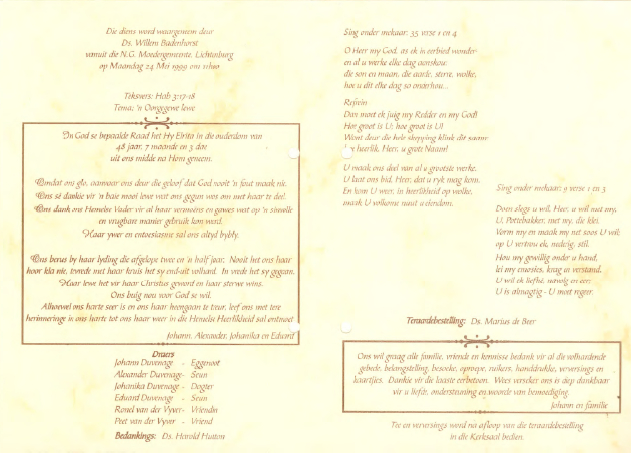 Die diens word waargeneem deur
Ds. Willem Badenhorst
vanuit die N.G. Moedergemeente, Lichtenburg
op Maandag 24 Mei 1999 om 11h00
Teksvers: Hab 3:17-18
Tema: 'n Oorgegewe lewe
In God se bepaalde Raad het Hy Elrita in die ouderdom van
48 jaar, 7 maande en 3 dae
uit ons midde na Hom geneem.
Omdat ons glo, aanvaar ons deur die geloof dat God nooit 'n fout maak nie.
Ons sê dankie vir 'n baie mooi lewe wat ons gegun was om met haar te deel.
Ons dank ons Hemelse Vader vir al haar vermoëns en gawes wat op 'n sinvolle
en vrugbare manier gebruik kon word.
Haar ywer en entoesiasme sal ons altyd bybly.
Ons berus by haar lyding die afgelope twee en 'n half jaar. Nooit het ons haar
hoor kla nie, tevrede met haar kruis het sy end-uit volhard. In vrede het sy gegaan.
Haar lewe het vir haar Christus geword en haar sterwe wins.
Ons buig nou voor God se wil.
Alhoewel ons harte seer is en ons haar heengaan te treur, leef ons met tere
herinneringe in ons harte tot ons haar weer in die Hemelse Heerlikheid sal ontmoet
Johann, Alexander, Johanika en Eduard
Draers
Johann Duvenage - Eggenoot
Alexander Duvenage - Seun
Johanika Duvenage - Dogter
Eduard Duvenage - Seun
Ronel van der Vyver - Vriendin
Peet van der Vyver - Vriend
Bedankings: Ds. Harold Hutton
Sing onder mekaar: 35 verse 1 en 4
O Heer my God, as ek in eerbied wonder
en al u werke elke dag aanskou:
die son en maan, die aarde, sterre, wolke,
hoe u dit elke dag so onderhou...
Refrein
Dan moet ek juig my Redder en my God!
Hoe groot is U; hoe groot is U!
Want deur die hele skepping klink dit saam:
die heerlik, Heer, u grote Naam!
U maak ons deel van al u grootste werke.
U laat ons bid, Heer, dat u ryk mag kom.
En kom U weer, in heerlikheid op wolke,
maak U volkome weer u eiendom.
Sing onder mekaar: 9 verse 1 en 3
Doen slegs u wil, Heer, u wil met my,
U, Pottebakker, met my, die klei.
Vorm my en maak my net soos U wil;
op U vertrou ek, nedrig, stil.
Hou my gewillig onder u hand,
lei my emosies, krag en verstand.
U wil ek liefhê, navolg en eer;
U is almagtig - U moet regeer.
Teraardebestelling: Ds. Marius de Beer
Ons wil graag alle familie, vriende en kennisse bedank vir al die volhardende
gebede, belangstelling, besoeke, oproepe, ruikers, handdrukke, verversings en
kaartjies. Dankie vir die laaste eerbetoon. Wees verseker ons is diep dankbaar
vir u liefde, ondersteuning en woorde van bemoediging.
Johann en familie
Tee en verversings word na afloop van die teraardebestelling
in die Kerksaal bedien.